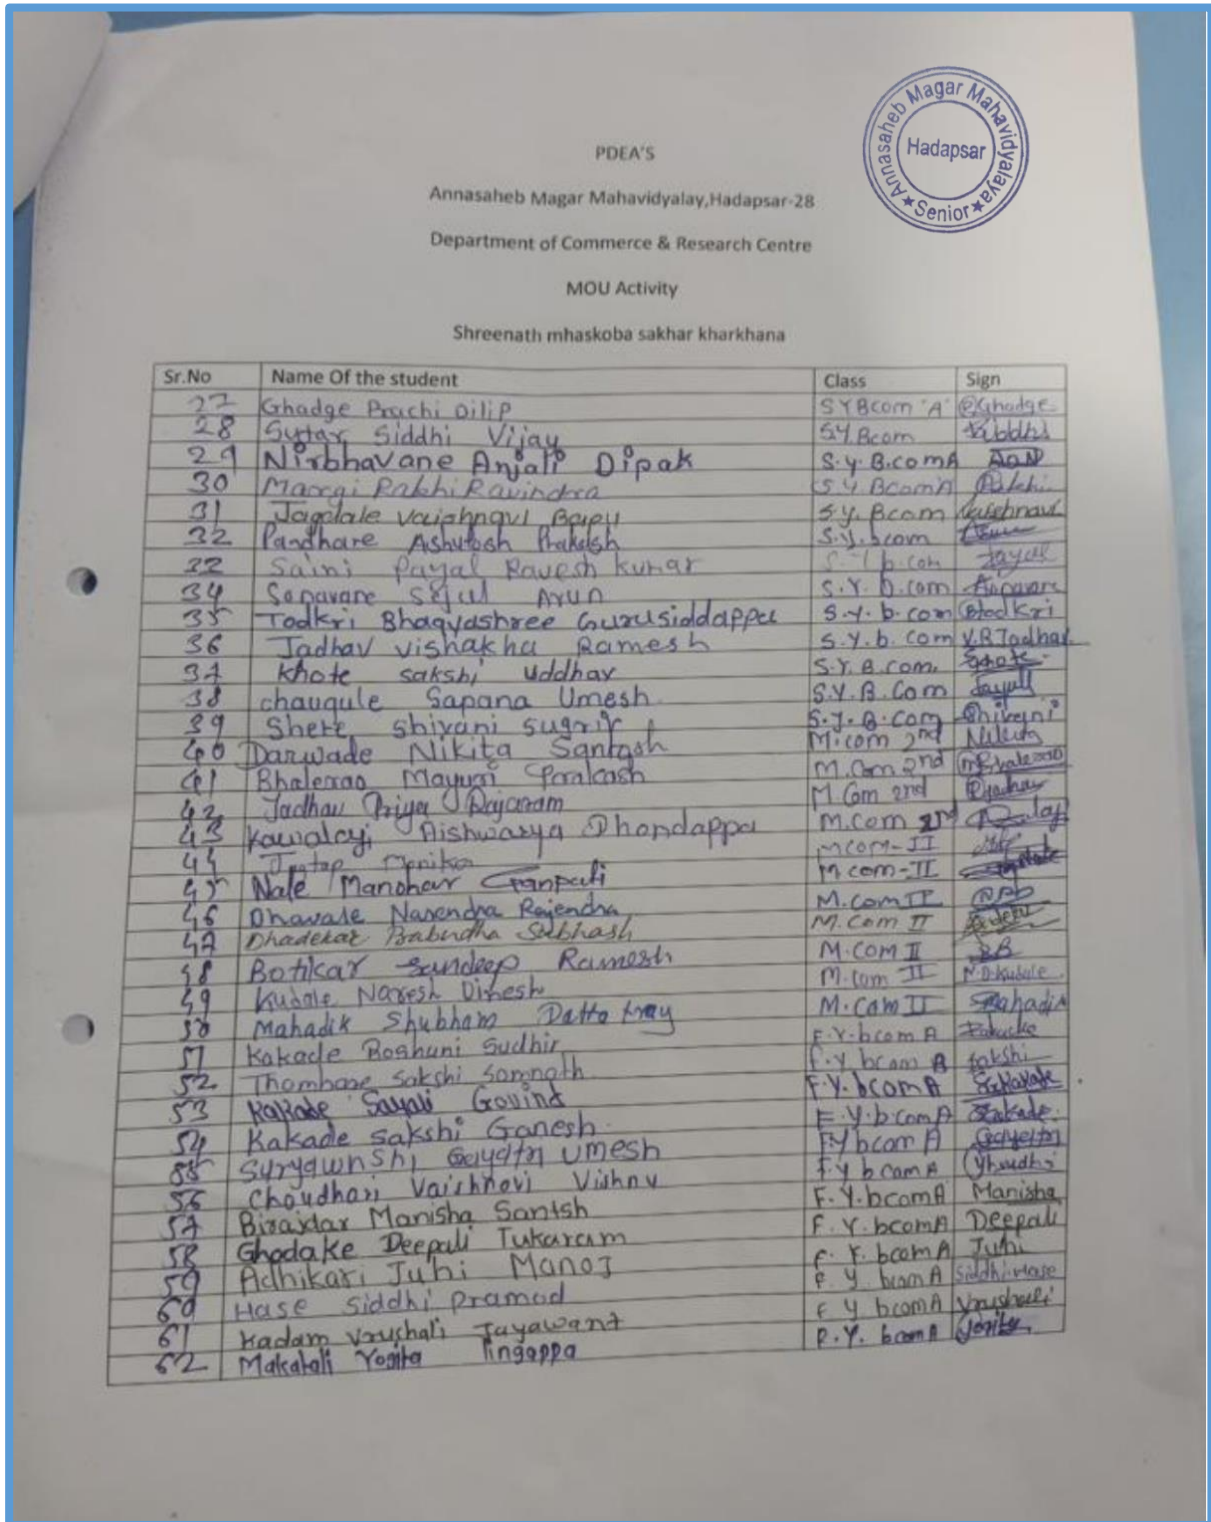 Annasaheb Magar Mahavidyalaya
Hadapsar
★ Senior ★
PDEA'S
Annasaheb Magar Mahavidyalay,Hadapsar-28
Department of Commerce & Research Centre
MOU Activity
Shreenath mhaskoba sakhar kharkhana
Sr.No Name Of the student Class Sign
27 Ghadge Prachi Dilip SYBcom 'A' @Ghadge
28 Sutar Siddhi Vijay S.Y.Bcom
29 Nirbhavane Anjali Dipak S.y.B.comA
30 Rakhi Ravindra S.Y BcomA
31 Jagdale Vaishnavi S.y. Bcom Vaishnavi
32 Pandhare Ashutosh Prakash S.y.bcom
32 Saini Payal Ravesh kumar b.com Payal
34 Sonavane Sejul Arun S.Y. b.com
35 Todkri Bhagyashree Gurusiddappa S.y. b.com Btodkri
36 Jadhav vishakha Ramesh S.y.b.com V.R.Jadhav
37 khote sakshi Uddhav S.Y.B.com.
38 chaugule Sapana Umesh S.Y.B.Com
39 Shere Shivani sugriv S.Y.B.com Shivani
40 Darwade Nikita Santosh M.com 2nd Nikita
41 Bhalerao Mayuri Prakash M.Com 2nd
42 Jadhav Priya Rajaram M.Com 2nd
43 Kawalayi Aishwarya Dhondappa M.com 2nd
44 Jagtap Monika Mcom-II
45 Nale Manohar Ganpati M com-II
46 Dhavale Narendra Rajendra M.com II
47 Dhadekar Subhash M.Com II
48 Botikar Sandeep Ramesh M.COM II
49 Kudale Naresh Dinesh M.com II N.D.Kudale
50 Mahadik Shubham Dattatray M.Com II
51 Kakade Roshani Sudhir F.Y.bcom A
52 Thombare Sakshi Somnath F.y bcom A Sakshi
53 Kakade Sayali Govind F.Y.bcomA
54 Kakade sakshi Ganesh F.Y.bcomA
55 Umesh F.Y bcom A
56 Choudhari Vaishnavi Vishnu F.y bcomA
57 Birajdar Manisha Santsh F.Y.bcomA Manisha
58 Ghodake Deepali Tukaram F.Y.bcomA Deepali
59 Adhikari Juhi Manoj F.Y. bcomA Juhi
60 Hase Siddhi Pramod F.y bcomA Siddhi Hase
61 Kadam Vrushali Jayawant F y bcomA Vrushali
62 Yogita F.Y. bcomA